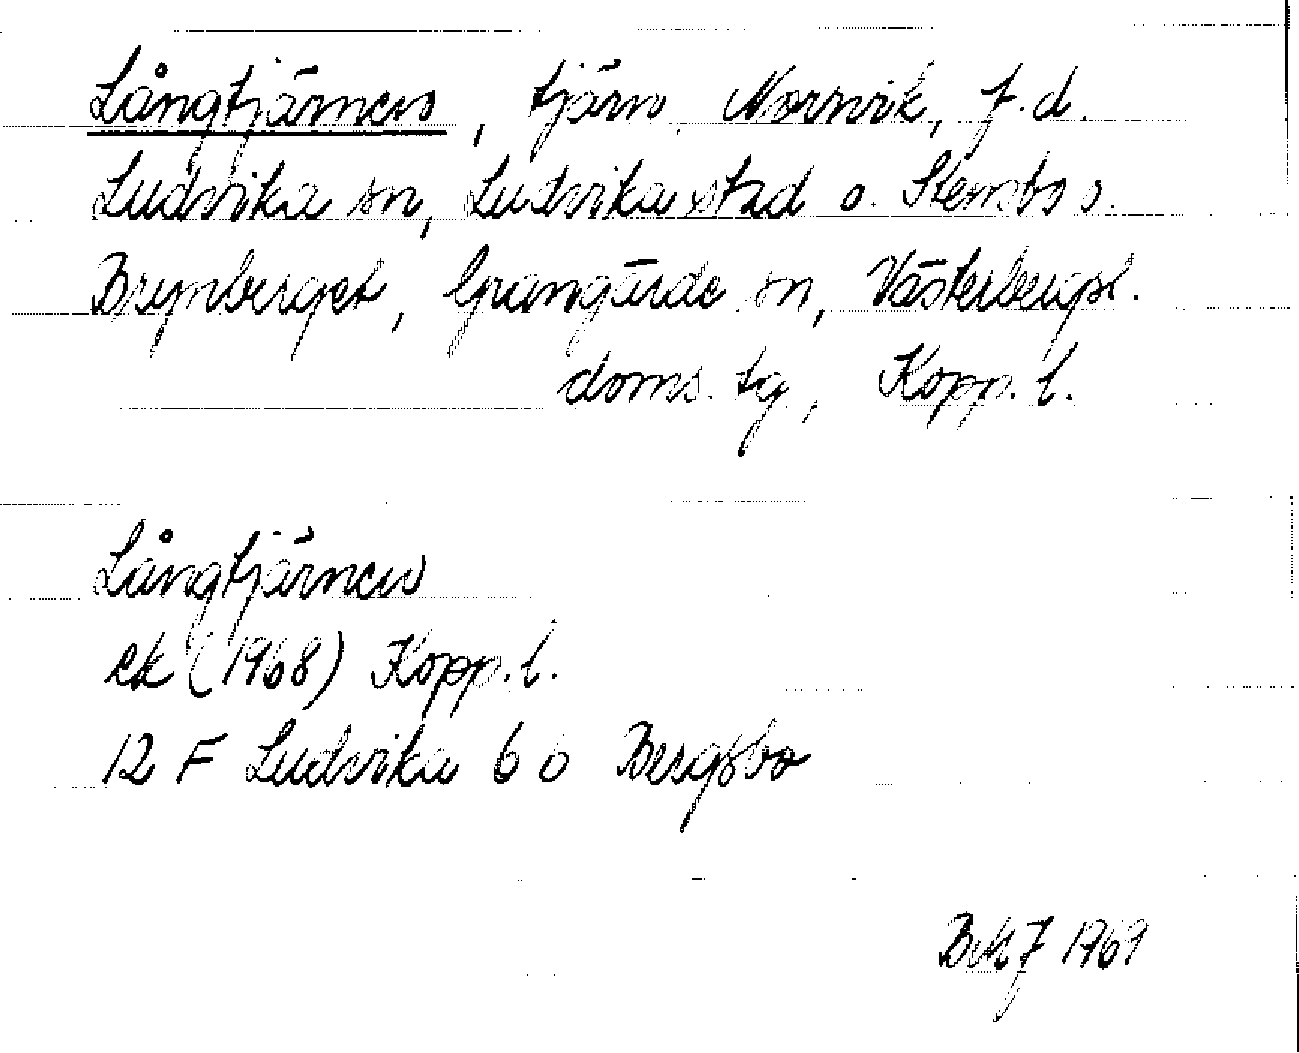 Långtjärnen, tjärn, Norrvik, f.d.
Ludvika sn, Ludvika stad o. Stensbo o.
Brynberget, Grangärde sn, Västerbergsl.
doms. tg, Kopp. l.
Långtjärnen
ek (1968) Kopp. l.
12 F Ludvika 6 b Bergsbo
1969